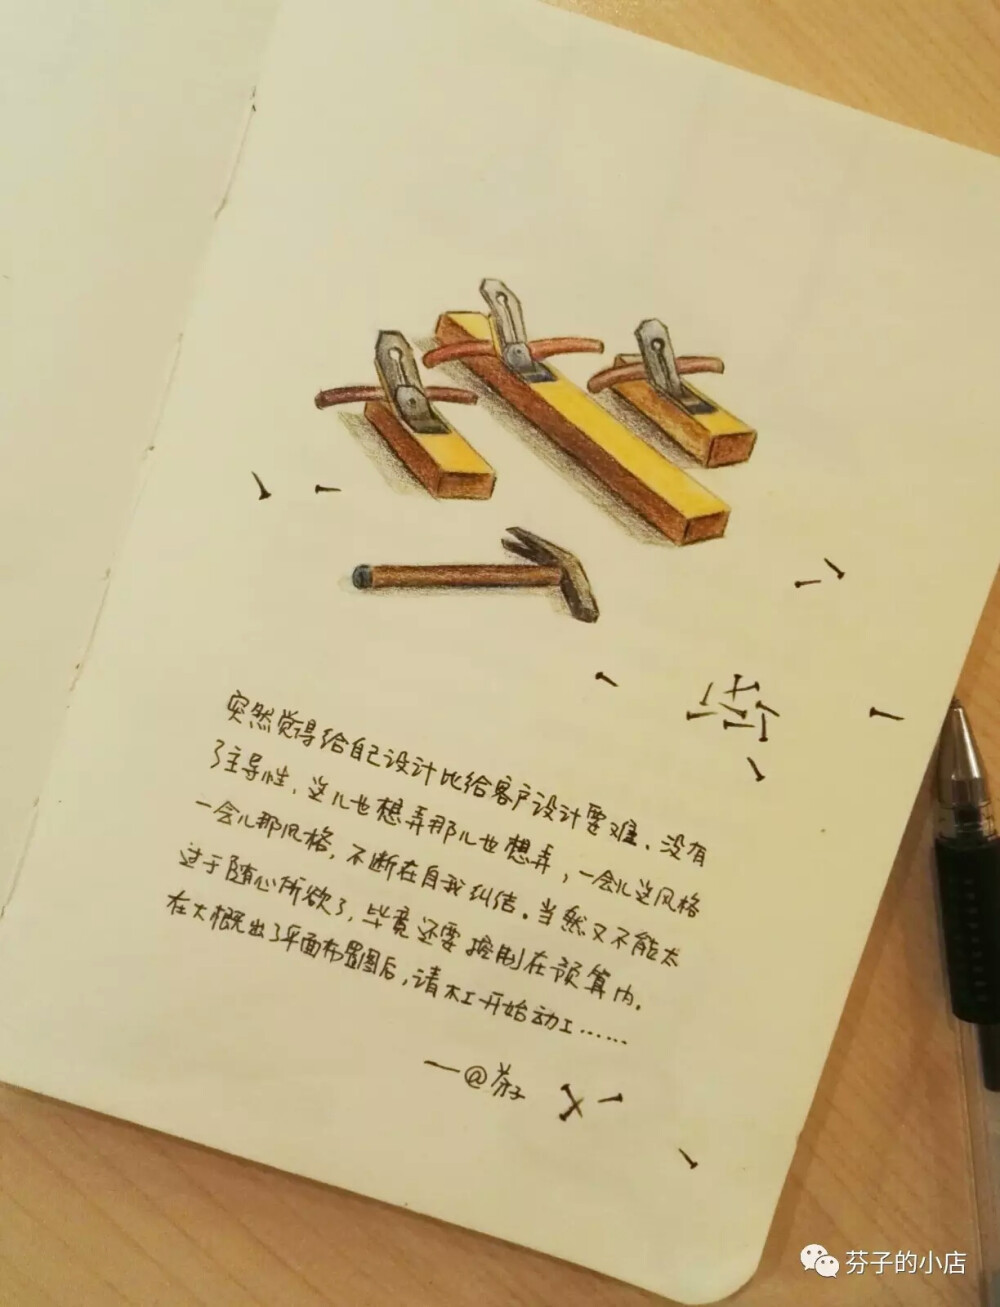 突然觉得给自己设计比给客户设计要难、没有
了主导性，这儿也想弄那儿也想弄，一会儿这风格
一会儿那风格，不断在自我纠结。当然又不能太
过于随心所欲了，毕竟还要控制在预算内。
在大概出了平面布置图后，请木工开始动工……
—@芬子
芬子的小店